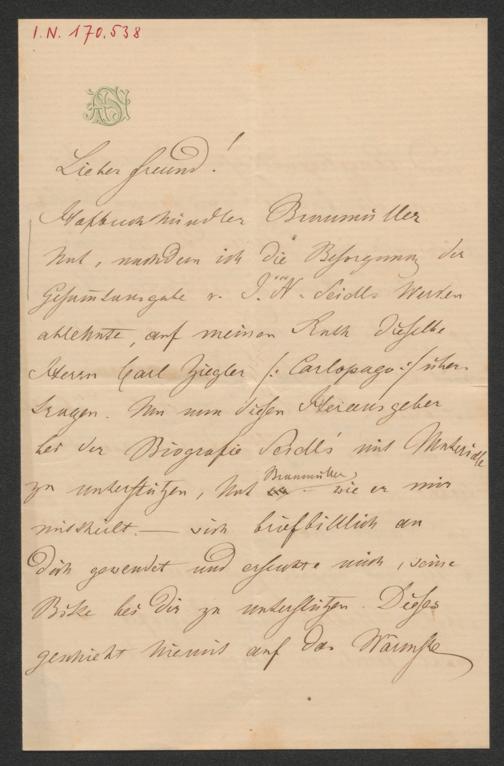 I.N. 170.538
Lieber Freund!
Hofbuchhändler Braumüller
hat, nachdem ich die Besorgung der
Gesammtausgabe v. J. N. Seidls Werken
ablehnte, auf meinen Rath dieselbe
Herrn Carl Ziegler /: Carlopago :/ über-
tragen. Um nun diesen Herausgeber
bei der Biografie Seidl's mit Materiale
zu unterstützen, hat Braumüller, wie er mir
mittheilt – sich brieflich an
Dich gewendet und ersuchte mich, seine
Bitte bei Dir zu unterstützen. Dieses
geschieht hiemit auf das Wärmste